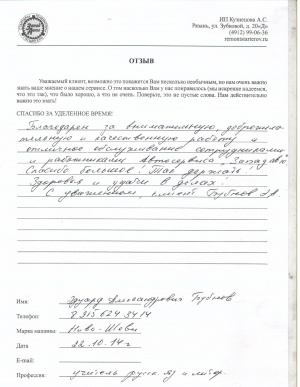 ИП Кузнецова А.С.
Рязань, ул. Зубковой, д. 20«Д»
(4912) 99-06-36
remontstarterov.ru
ОТЗЫВ
Уважаемый клиент, возможно это покажется Вам несколько необычным, но нам очень важно
знать ваше мнение о нашем сервисе. О том насколько Вам у нас понравилось (мы искренне надеемся,
что это так), что было хорошо, а что не очень. Поверьте, это не пустые слова. Нам действительно
важно это знать!
СПАСИБО ЗА УДЕЛЕННОЕ ВРЕМЯ!
Благодарен за внимательную, доброжела-
тельную и качественную работу и
отличное обслуживание сотрудниками
и работниками Автосервиса "Запад авто"
Спасибо большое! Так держать!
Здоровья и удачи в делах!
С уважением, клиент Бубнов ЭА
Имя: Эдуард Александрович Бубнов
Телефон: 8 915 624 3414
Марка машины: Нива-Шеви
Дата 22.10.14 г
E-mail:
Профессия: учитель русск. яз и литер.